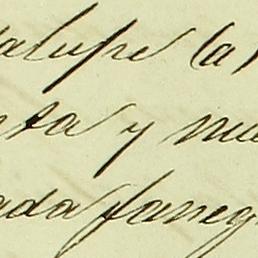 alupe la
nta y nu
ada faneg